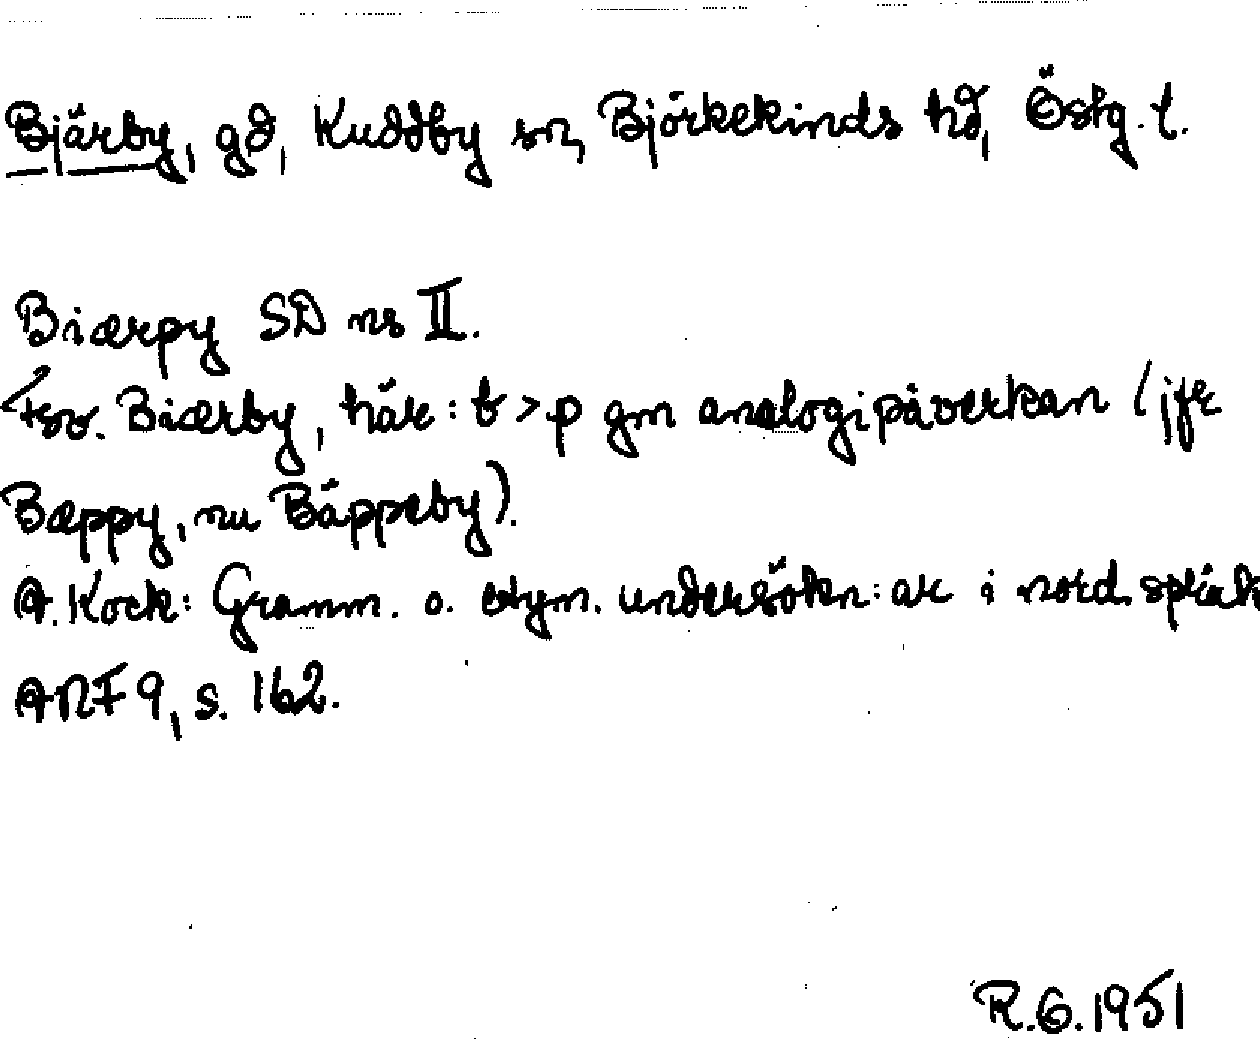 Bjärby, gd, Kuddby sn, Björkekinds hd, Östg. l.
Biærpy SD ns II.
Fsv. Biærby, här: b > p gm analogipåverkan (jfr
Bæppy, nu Bäppeby).
A. Kock: Gramm. o. etym. undersökn:ar i nord. språk
ANF 9, s. 162.
R.G. 1951